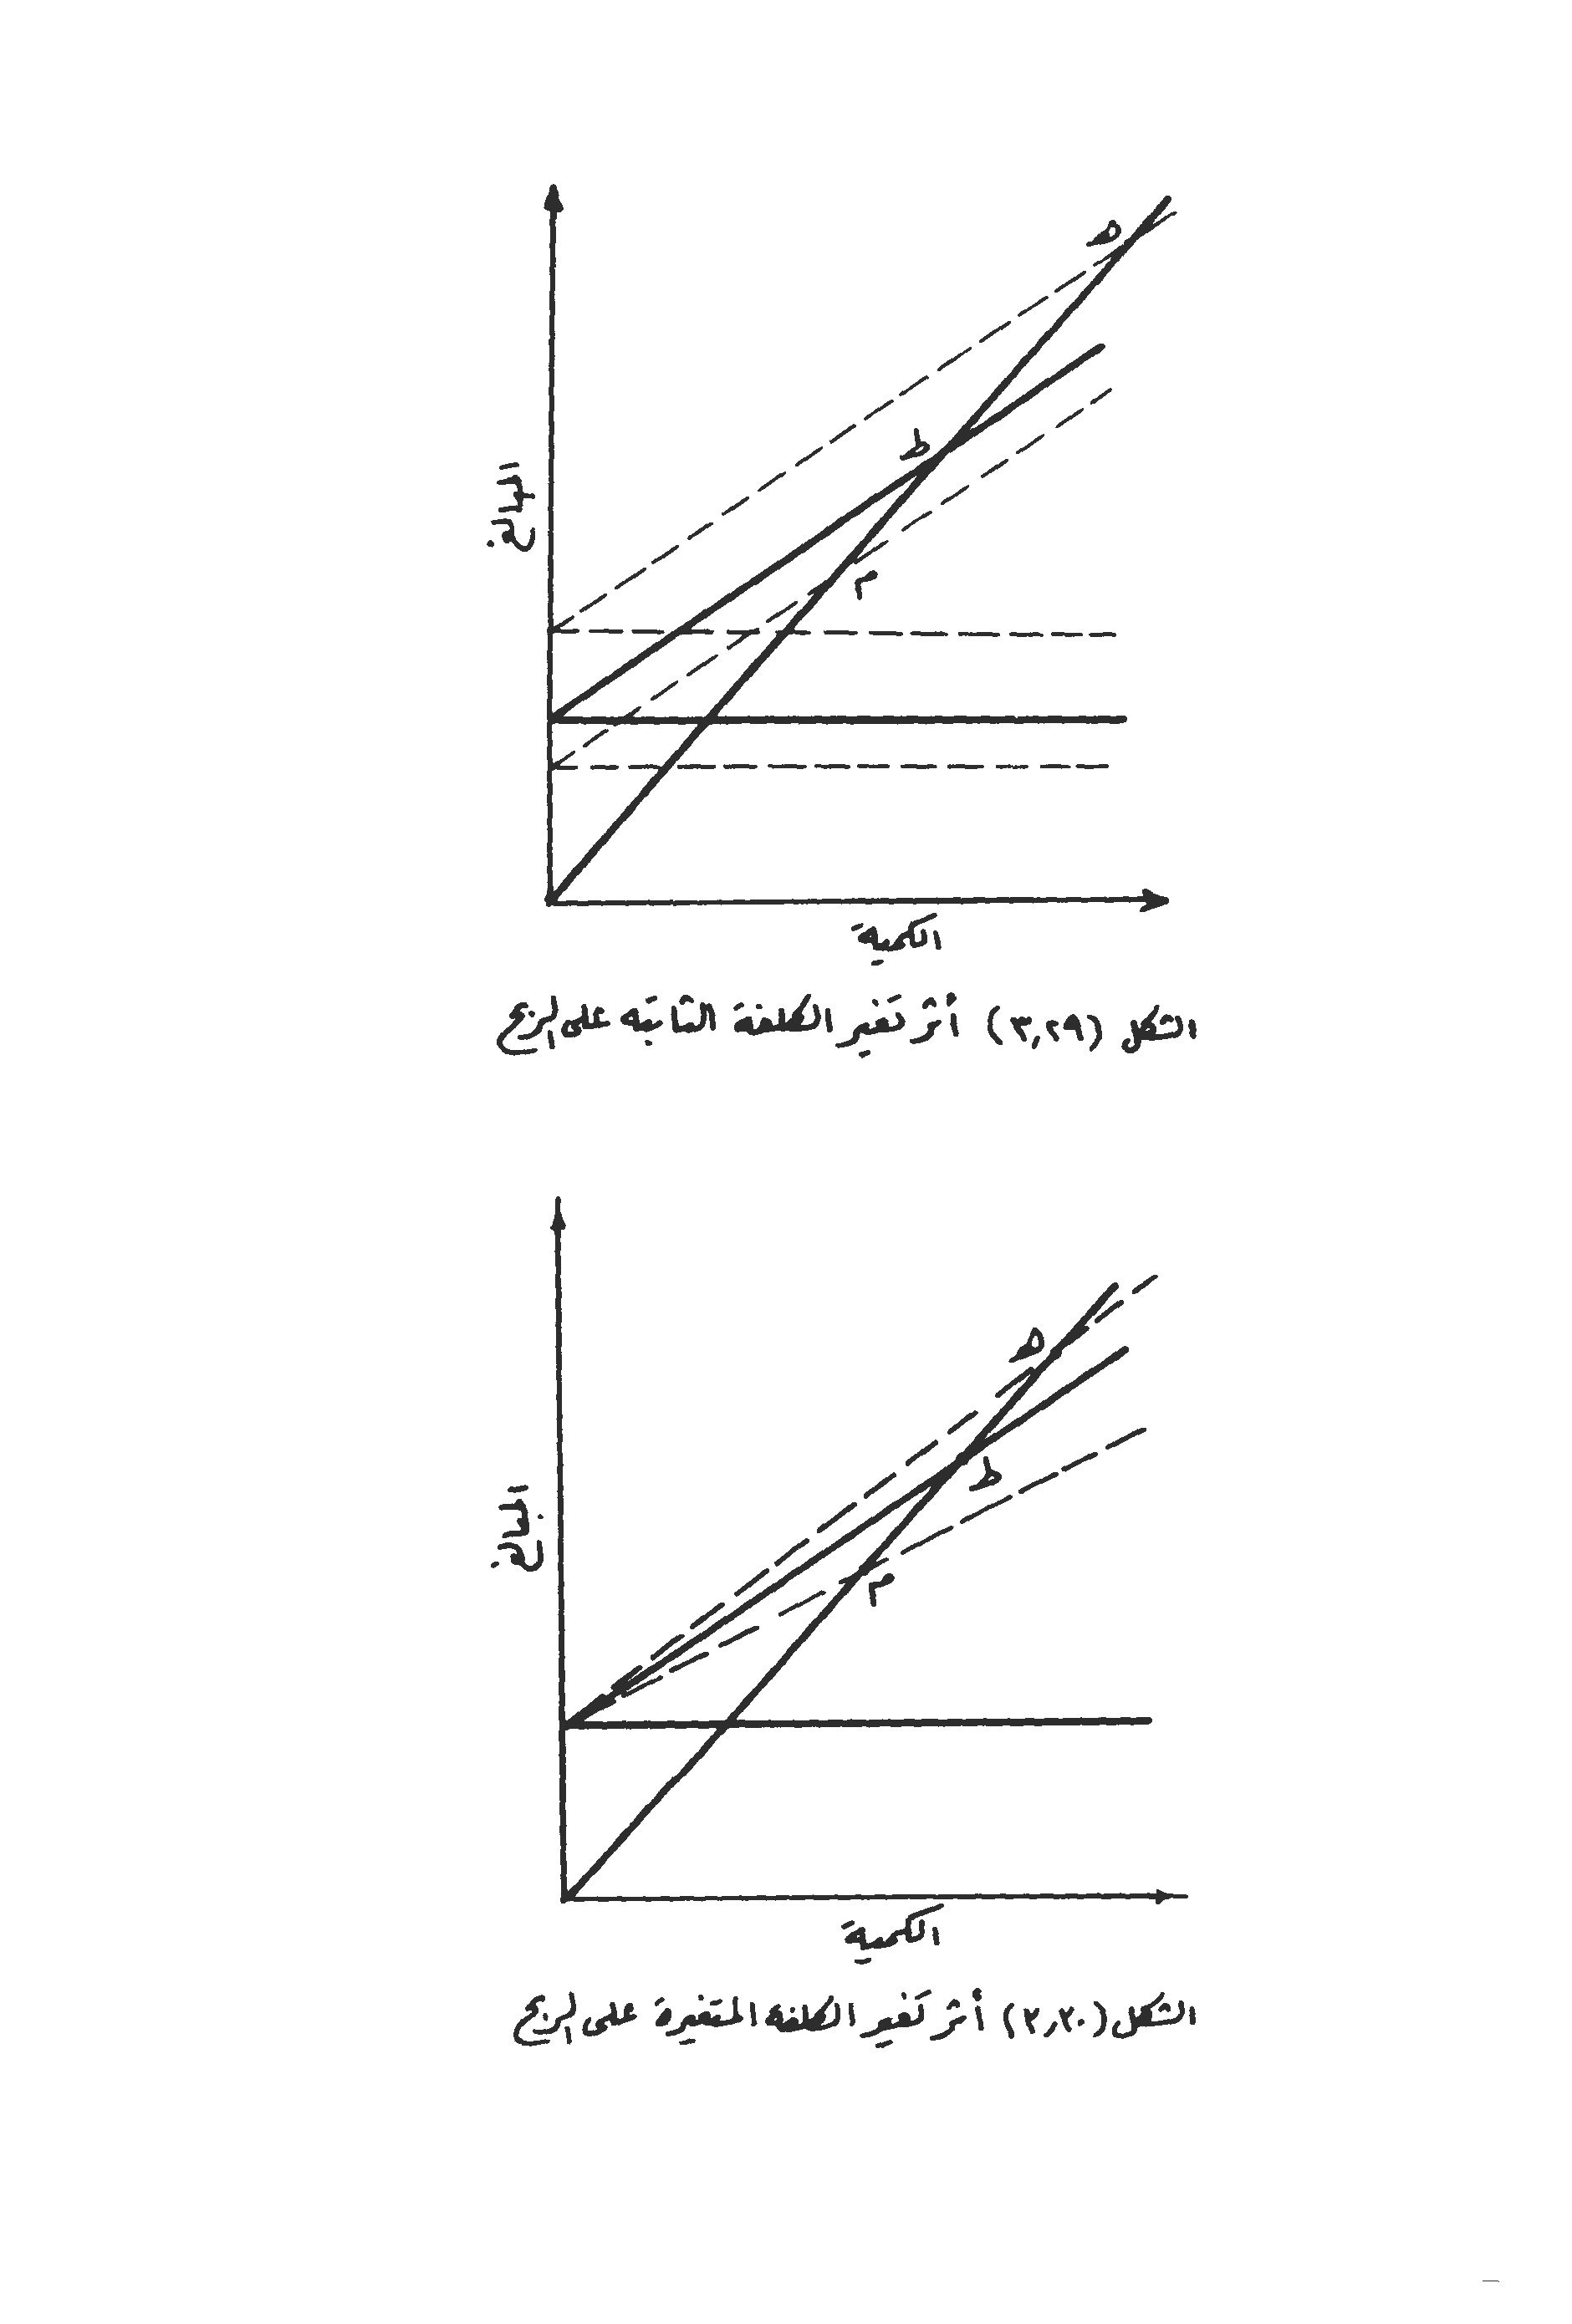 هـ
ط
م
المبالغ
الكمية
الشكل (٣,٢٩) أثر تغير الكلفة الثابته على الربح
هـ
ط
م
المبالغ
الكمية
الشكل (٣,٣٠) أثر تغير الكلفة المتغيرة على الربح